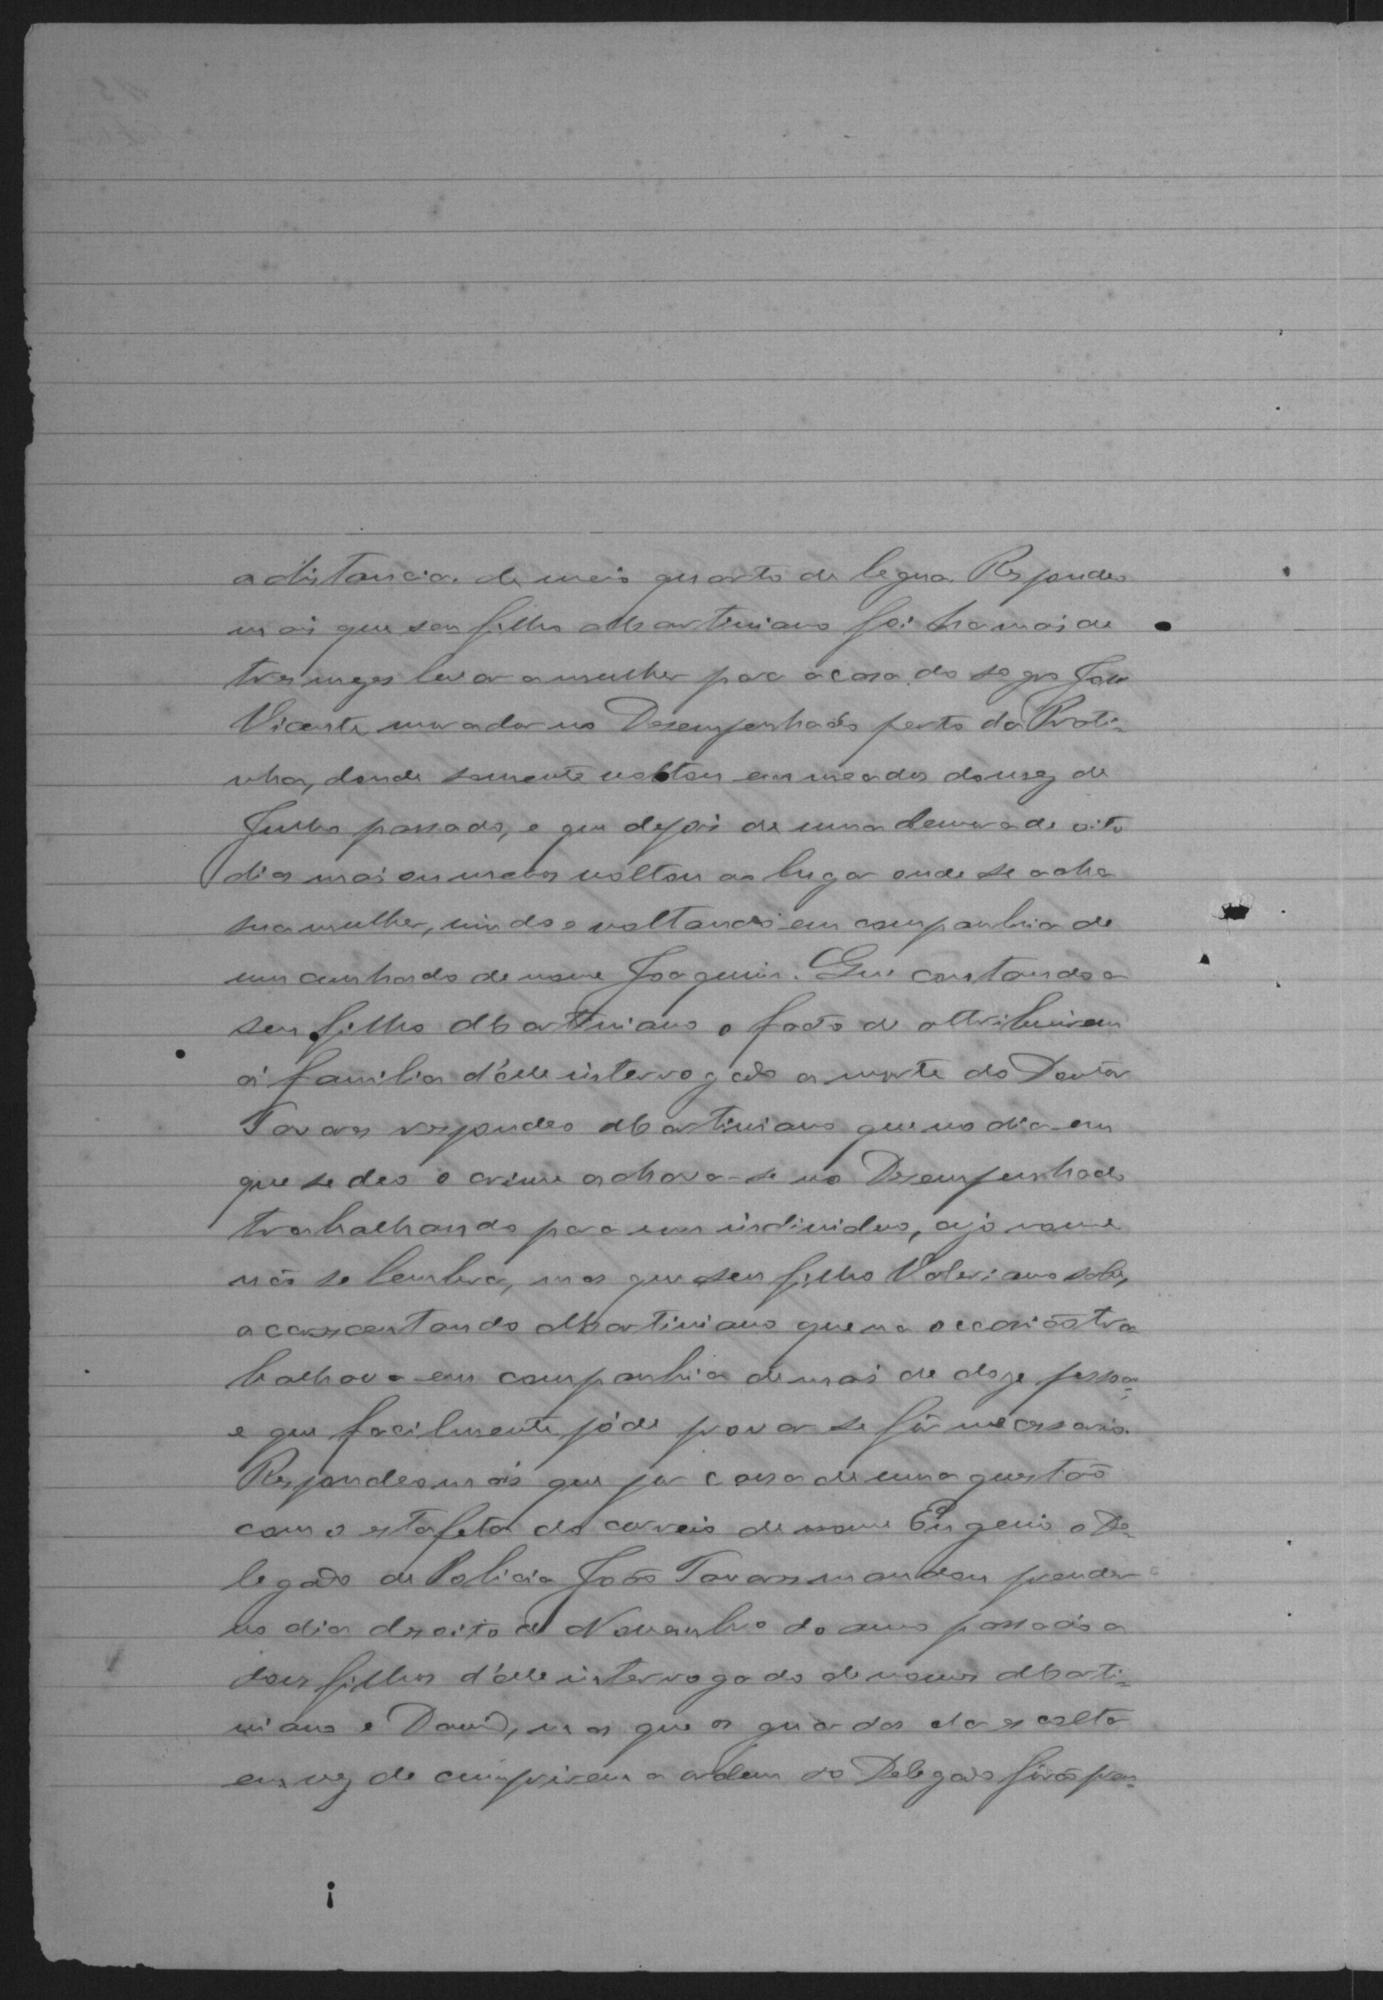 a distancia de meio quarto de legua. Respondeo
mais que seu filho Martiniano foi ha mais de
tres mezes levar a mulher para a casa do sogro José
Vicente morador no Desempenhado perto da Prati-
nha, donde somente voltou em meados do mez de
Julho passado, e que depois de uma demora de oito
dias mais ou menos voltou ao lugar onde se acha
sua mulher, vindo e voltando em companhia de
um cunhado de nome Joaquim. Que constando a
seu filho Martiniano o facto de attribuirem
á familia d'elle interrogado a morte do Doutor
Tavares respondeo Martiniano que no dia em
que se deo o crime achava-se no Desempenhado
trabalhando para um individuo, cujo nome
não se lembra, mas que seu filho Valeriano sabe,
accrescentando Martiniano que na occasião tra
balhava em companhia de mais de doze pessoas,
e que facilmente póde provar se fôr necessario.
Respondeo mais que por causa de uma questão
com o estafeta do correio de nome Eugenio o De-
legado de Policia João Tavares mandou prender
no dia dezoito de Novembro do anno passado a
dous filhos d'elle interrogado de nomes Marti-
niano e David, mas que os guardas da escolta
em vez de cumprirem a ordem do Delegado forão pren-